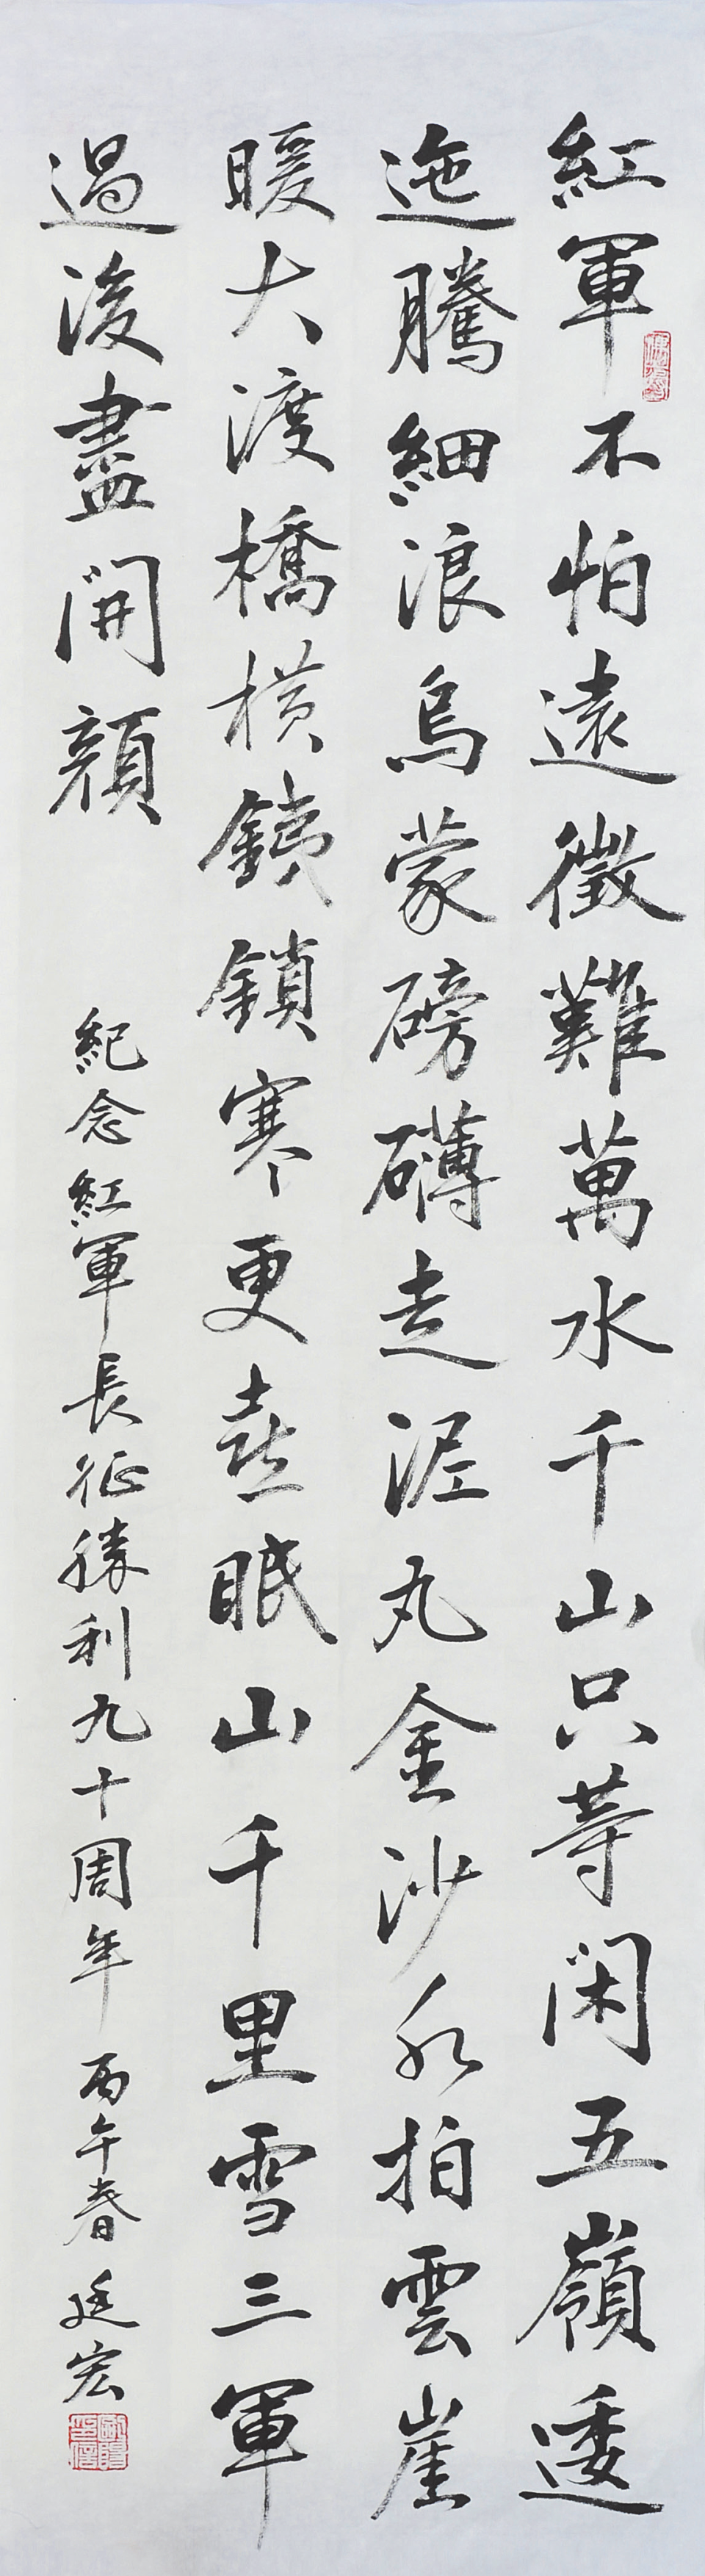 紅軍不怕遠徵難萬水千山只等閑五嶺逶
迤騰細浪烏蒙磅礴走泥丸金沙水拍雲崖
暖大渡橋橫銕鎖寒更喜眠山千里雪三軍
過後盡開顏
紀念紅軍長征勝利九十周年 丙午春 廷宏